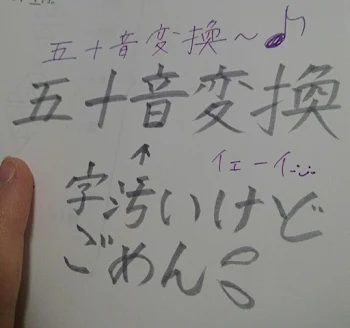 五十音変換～♪
五十音変換
↑
イエーイ:)
字汚いけど
ごめん💦